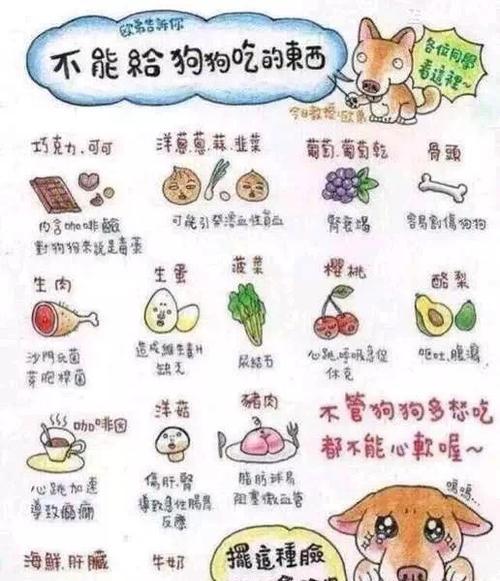 歐弟告訴你
不能給狗狗吃的東西
各位同學
看這裡~
今日教授:歐弟
巧克力、可可
內含咖啡鹼
對狗狗來說是毒藥
洋蔥、蔥、蒜、韭菜
可能引發溶血性貧血
葡萄、葡萄乾
腎衰竭
骨頭
容易割傷狗狗
生肉
沙門氏菌
芽胞桿菌
生蛋
造成維生素H
缺乏
菠菜
尿結石
櫻桃
心跳、呼吸急促
休克
酪梨
嘔吐、腹瀉
咖啡因
心跳加速
導致癲癇
洋菇
傷肝、腎
導致急性腸胃
反應
豬肉
脂肪球易
阻塞微血管
不管狗狗多想吃
都不能心軟喔~
嗚嗚...
擺這種臉
海鮮、肝臟
牛奶